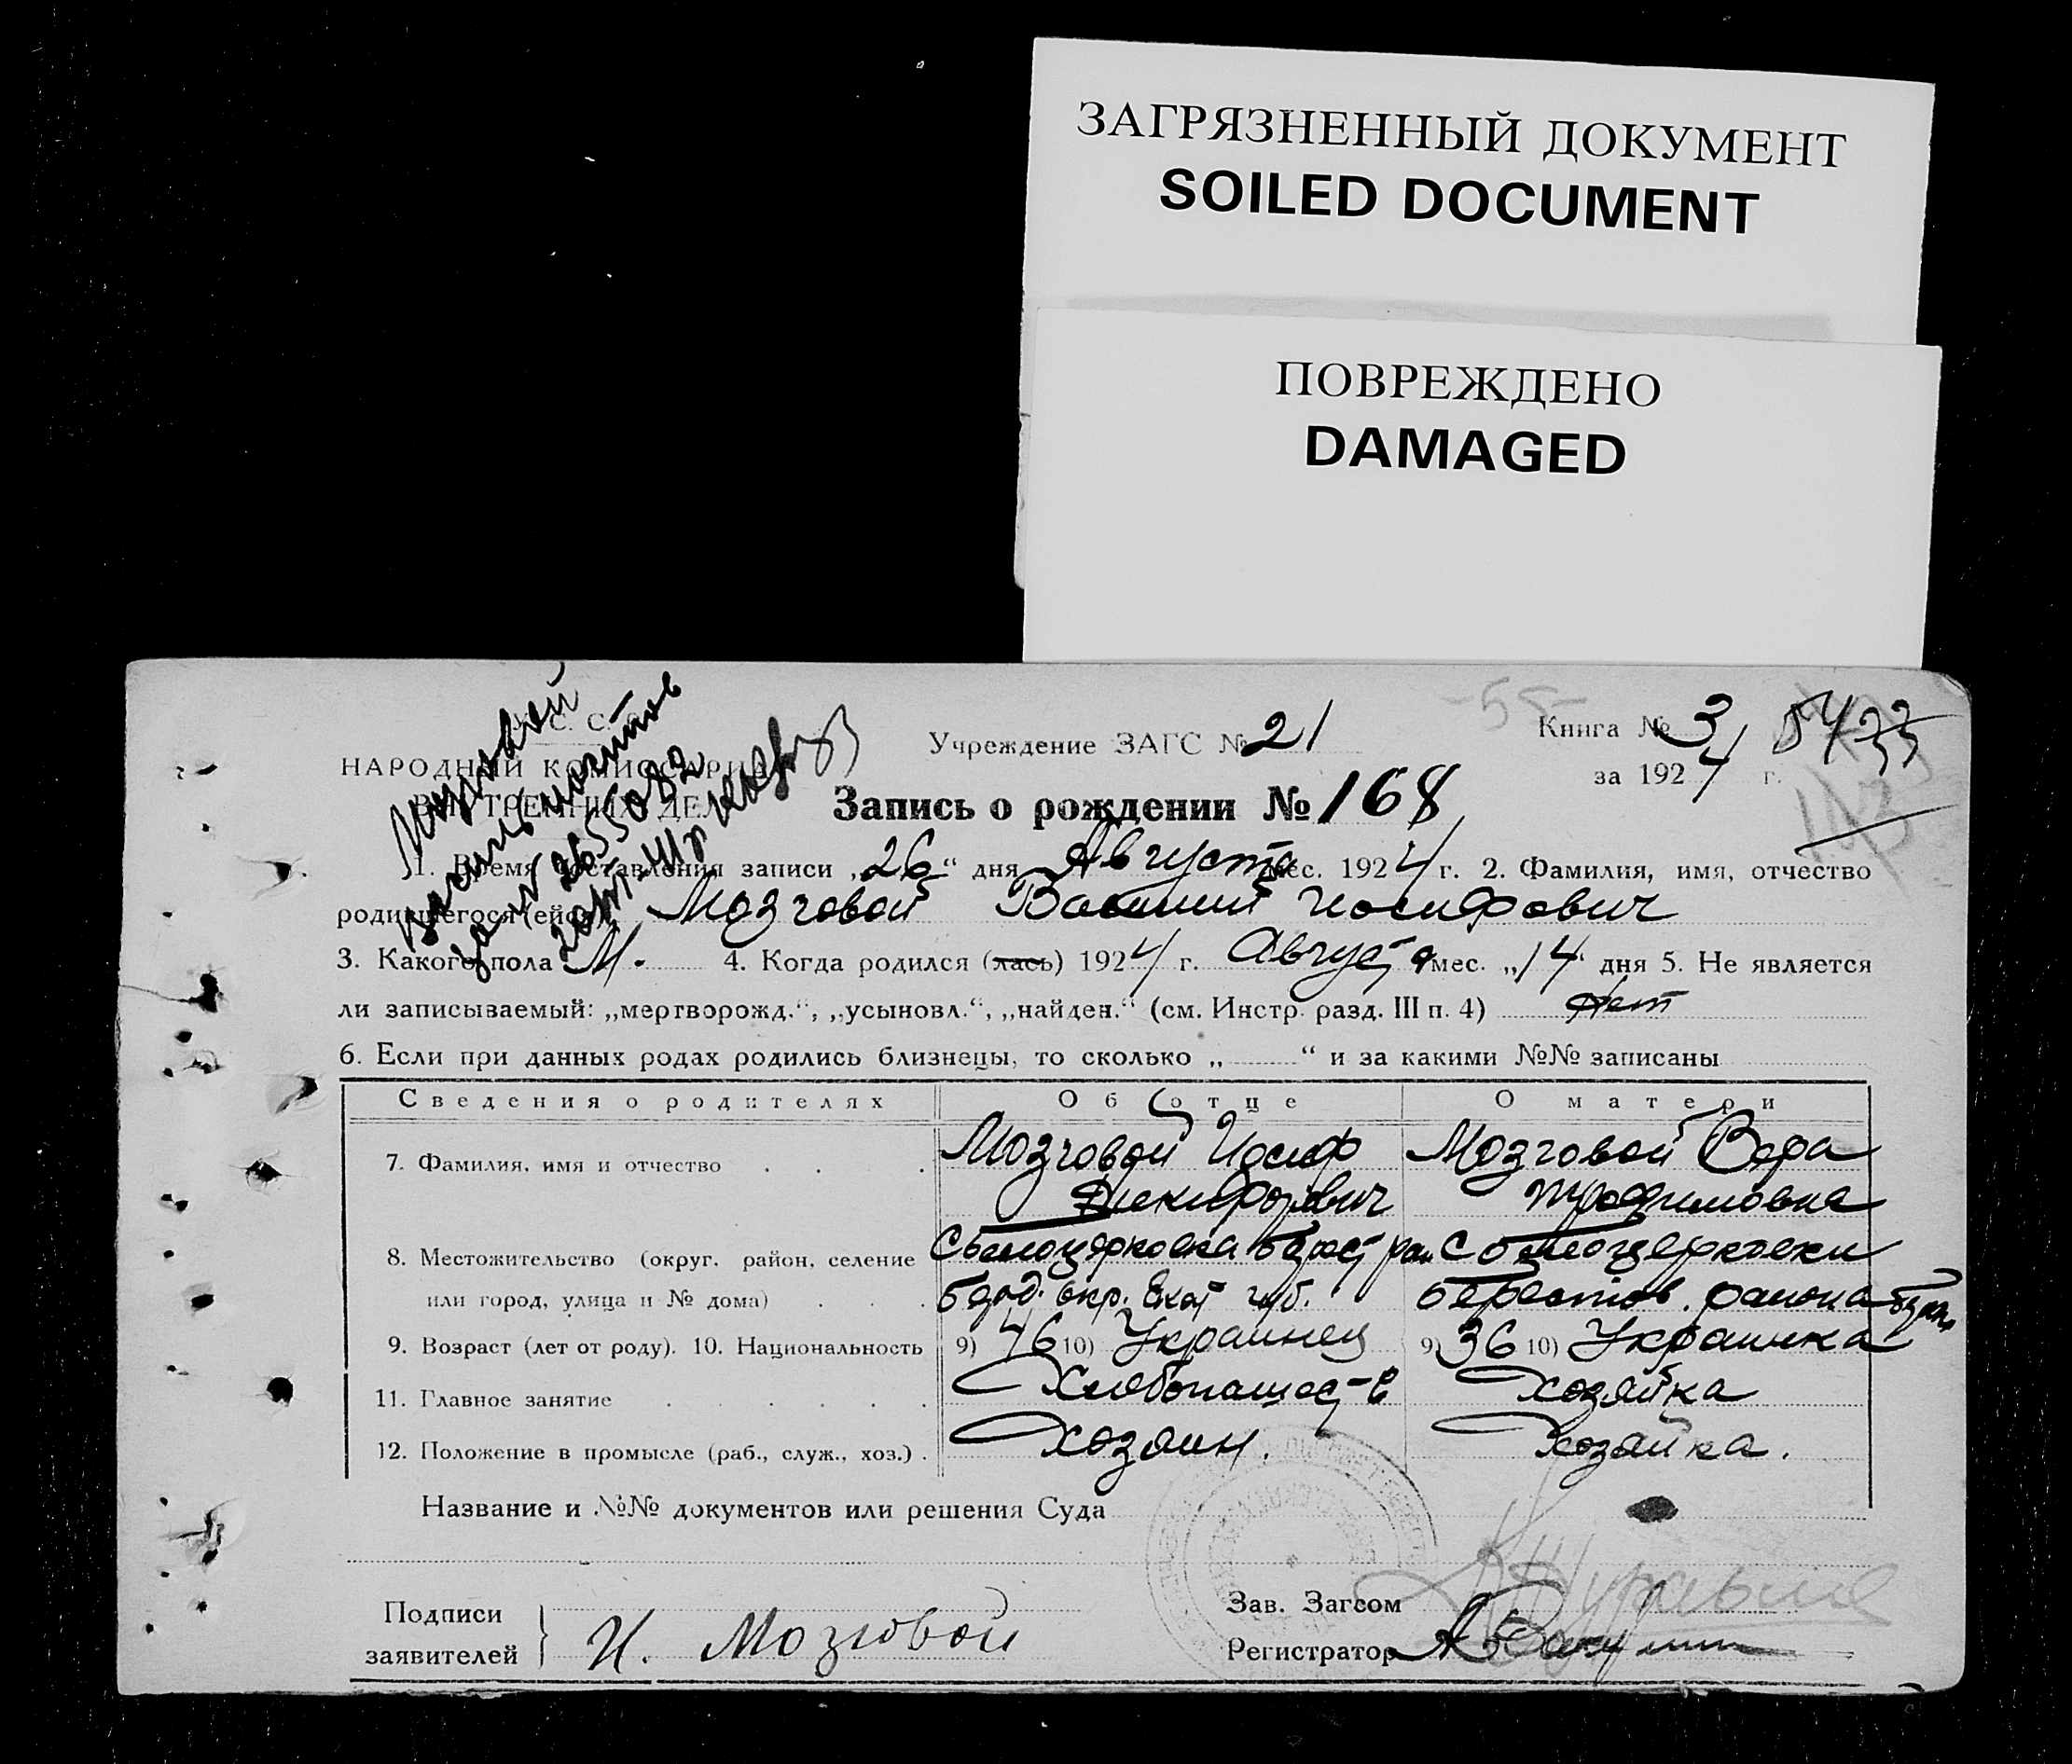 ЗАГРЯЗНЕННЫЙ ДОКУМЕНТ
SOILED DOCUMENT
ПОВРЕЖДЕНО
DAMAGED
-55-
С. С.
НАРОДНЫЙ КОМИССАРИАТ
ВНУТРЕННИХ ДЕЛ
Учреждение ЗАГС № 21
Книга № 3
за 1924 г.
Запись о рождении № 168
1. Время составления записи „26“ дня Августа мес. 1924 г. 2. Фамилия, имя, отчество
родившегося (ейся) Мозговой Василий Иосифович
3. Какого пола М. 4. Когда родился (лась) 1924 г. Августа мес. „14“ дня 5. Не является
ли записываемый: „мертворожд.“, „усыновл.“, „найден.“ (см. Инстр. разд. III п. 4) Нет
6. Если при данных родах родились близнецы, то сколько „ “ и за какими №№ записаны
Сведения о родителях Об отце О матери
7. Фамилия, имя и отчество Мозговой Иосиф Мозговой Вера
Никифорович Трофимовна
8. Местожительство (округ, район, селение С Белоцерковка Берест рай С Белоцерковки
или город, улица и № дома) Берд. окр. Екат губ. Берестов. района
9. Возраст (лет от роду). 10. Национальность 9) 46 10) Украинец 9) 36 10) Украинка
11. Главное занятие Хлебопашество Хозяйка
12. Положение в промысле (раб., служ., хоз.) Хозяин. Хозяйка.
Название и №№ документов или решения Суда
Подписи
заявителей И. Мозговой
Зав. Загсом
Регистратор